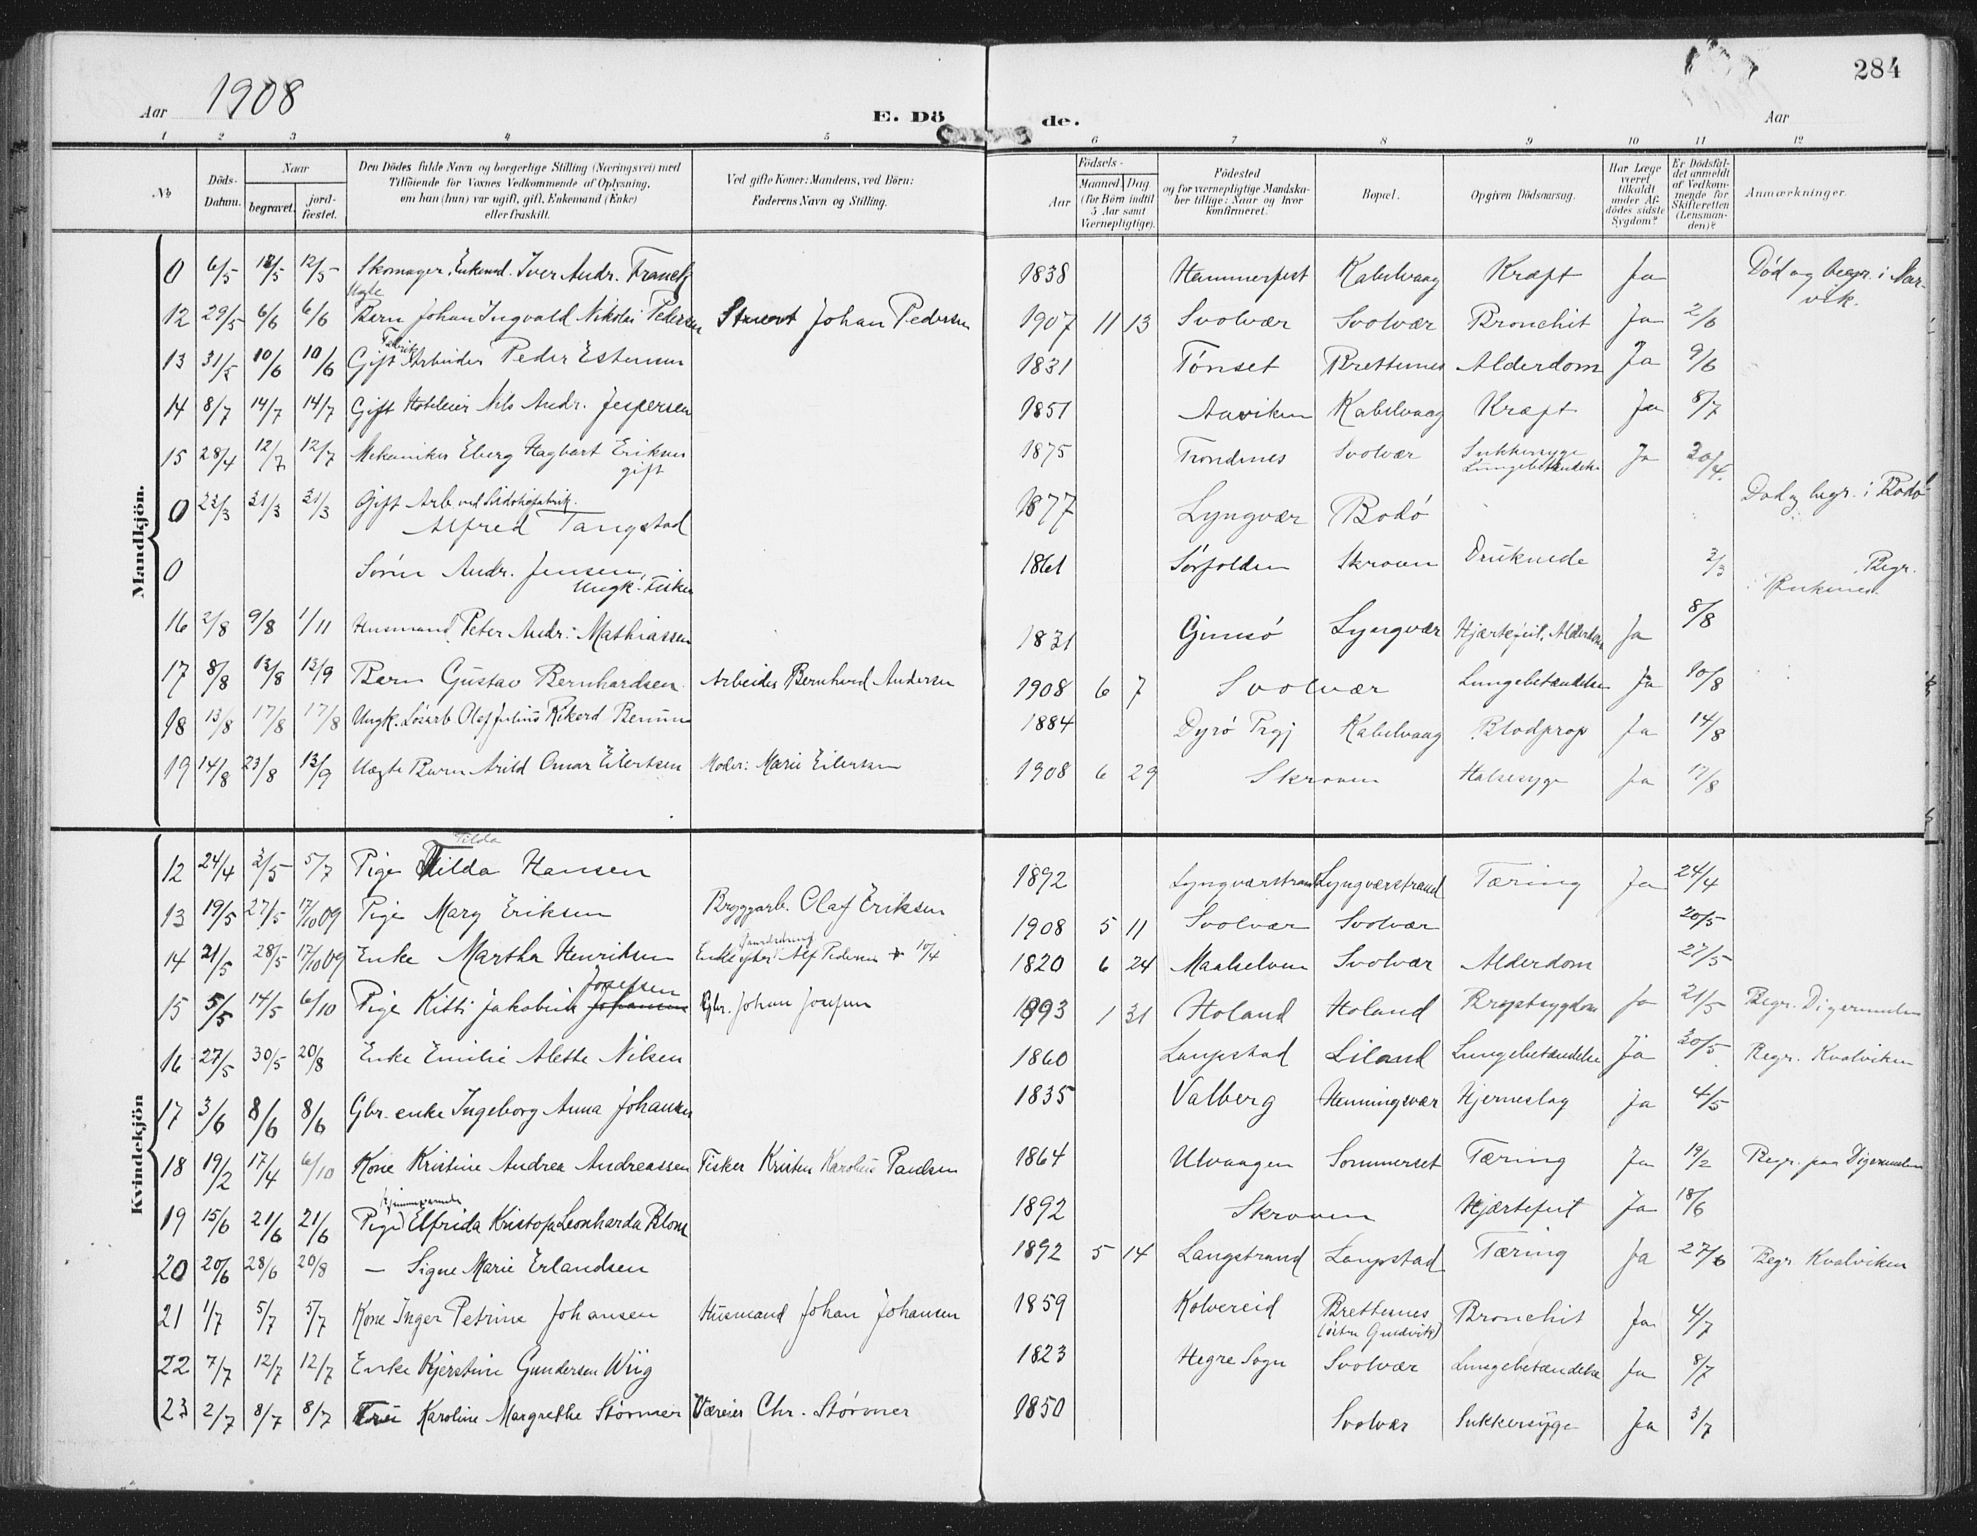 284
Aar 1908
E. Dö de.
Aar
1 2 3 4 5 6 7 8 9 10 11 12
No
Döds-Datum.
Naar
begravet.
jord-fæstet.
Den Dödes fulde Navn og borgerlige Stilling (Næringsvei) med
Tilföiende for Voxnes Vedkommende af Oplysning,
om han (hun) var ugift, gift, Enkemand (Enke)
eller fraskilt.
Ved gifte Koner: Mandens, ved Börn:
Faderens Navn og Stilling.
Födsels-
Aar
Maaned Dag
(for Börn indtil
5 Aar samt
Værnepligtige).
Födested
og for værnepligtige Mandska-
ber tillige: Naar og hvor
konfirmeret.
Bopæl.
Opgiven Dödsaarsag.
Har Læge
været
tilkaldt
under Af-
dödes sidste
Sygdom?
Er Dödsfal-
det anmeldt
af Vedkom-
mende for
Skifteretten
(Lensman-
den)?
Anmærkninger.
Mandkjön.
0 6/5 12/5 12/5 Skomager, Enkemd. Iver Andr. Franck 1838 Hammerfest Kabelvaag Kræft Ja Död og begr. i Nar-
vik.
Uægte
12 29/5 6/6 6/6 Barn Johan Ingvald Nikolai Pedersen Stuert Johan Pedersen 1907 11 13 Svolvær Svolvær Bronchit Ja 2/6
Fabrik
13 31/5 10/6 10/6 Gift Arbeider Peder Estensen 1831 Tønset Brettesnes Alderdom Ja 9/6
14 8/7 14/7 14/7 Gift Hoteleier Nils Andr. Jespersen 1851 Aaviken Kabelvaag Kræft Ja 8/7
15 28/4 12/7 12/7 Mekaniker Eberg Hagbart Eriksen 1875 Trondenes Svolvær Sukkersyge Ja 30/4
gift Lungebetændelse
0 22/3 31/3 31/3 Gift Arb ved Sildoliefabrik.
Alfred Tangstad 1877 Lyngvær Bodö Död og begr. i Bodö
0 Sörin Andr. Jensen, 1861 Sörfolden Skroven Druknede 2/3 Begr.
Ungk. Fisker
16 2/8 9/8 1/11 Husmand Peter Andr. Mathiassen 1831 Gimsö Lyngvær Hjærtefeil, Alderdom Ja 8/8
17 8/8 13/8 13/9 Barn Gustav Bernhardsen Arbeider Bernhard Andersen 1908 6 7 Svolvær Lungebetændelse Ja 10/8
18 13/8 17/8 17/8 Ungk. Lösarb Olaf Julius Rikerd Bensen 1884 Dyrö Prgj Kabelvaag Blodprop Ja 14/8
19 14/8 23/8 13/9 Uægte Barn Arild Omar Eilertsen Moder: Marie Eilertsen 1908 6 29 Skroven Halsesyge Ja 17/8
Kvindekjön
Tilda
12 24/4 3/5 5/7 Pige Tilda Hansen 1892 Lyngværstrand Lyngværstrand Tæring Ja 24/4
13 19/5 27/5 17/10 09 Pige Mary Eriksen Bryggarb. Olaf Eriksen 1908 5 11 Svolvær Svolvær 20/5
14 21/5 28/5 17/10 09 Enke Martha Henriksen Enke efter Alf Pedersen + 10/4 1820 6 24 Maalselven Svolvær Alderdom 27/5
Josefsen
15 5/5 14/5 6/10 Pige Kitti Jakobine Johansen Gbr. Johan Josefsen 1893 1 31 Holand Holand Brystsygdom Ja 21/5 Begr. Digermulen
16 27/5 30/5 20/8 Enke Emilie Alette Nilsen 1860 Laupstad Liland Lungebetændelse Ja 30/5 Begr. Kvalviken
17 3/6 8/6 8/6 Gbr. enke Ingeborg Anna Johansen 1835 Valberg Henningsvær Hjerneslag ja 4/5
18 19/2 17/4 6/10 Kone Kristine Andrea Andreassen Fisker Kristen Karolius Paulsen 1864 Ulvaagen Sommerset Tæring Ja 19/2 Begr. paa Digermulen
hjemmeværende
19 15/6 21/6 21/6 Pige Elfrida Kristofa Leonharda Blom 1892 Skroven Hjærtefeil Ja 18/6
20 20/6 28/6 20/8 — Signe Marie Erlandsen 1892 5 14 Langstrand Laupstad Tæring Ja 27/6 Begr. Kvalviken
21 1/7 5/7 5/7 Kone Inger Petrine Johansen Husmand Johan Johansen 1859 Kolvereid Brettesnes Bronchit Ja 4/7
22 7/7 12/7 12/7 Enke Kjerstine Gundersen Wiig 1823 Hegre Sogn Svolvær Lungebetændelse Ja 8/7
23 2/7 8/7 8/7 Fru Karoline Margrethe Störmer Væreier Chr. Störmer 1850 Svolvær Sukkersyge Ja 3/7